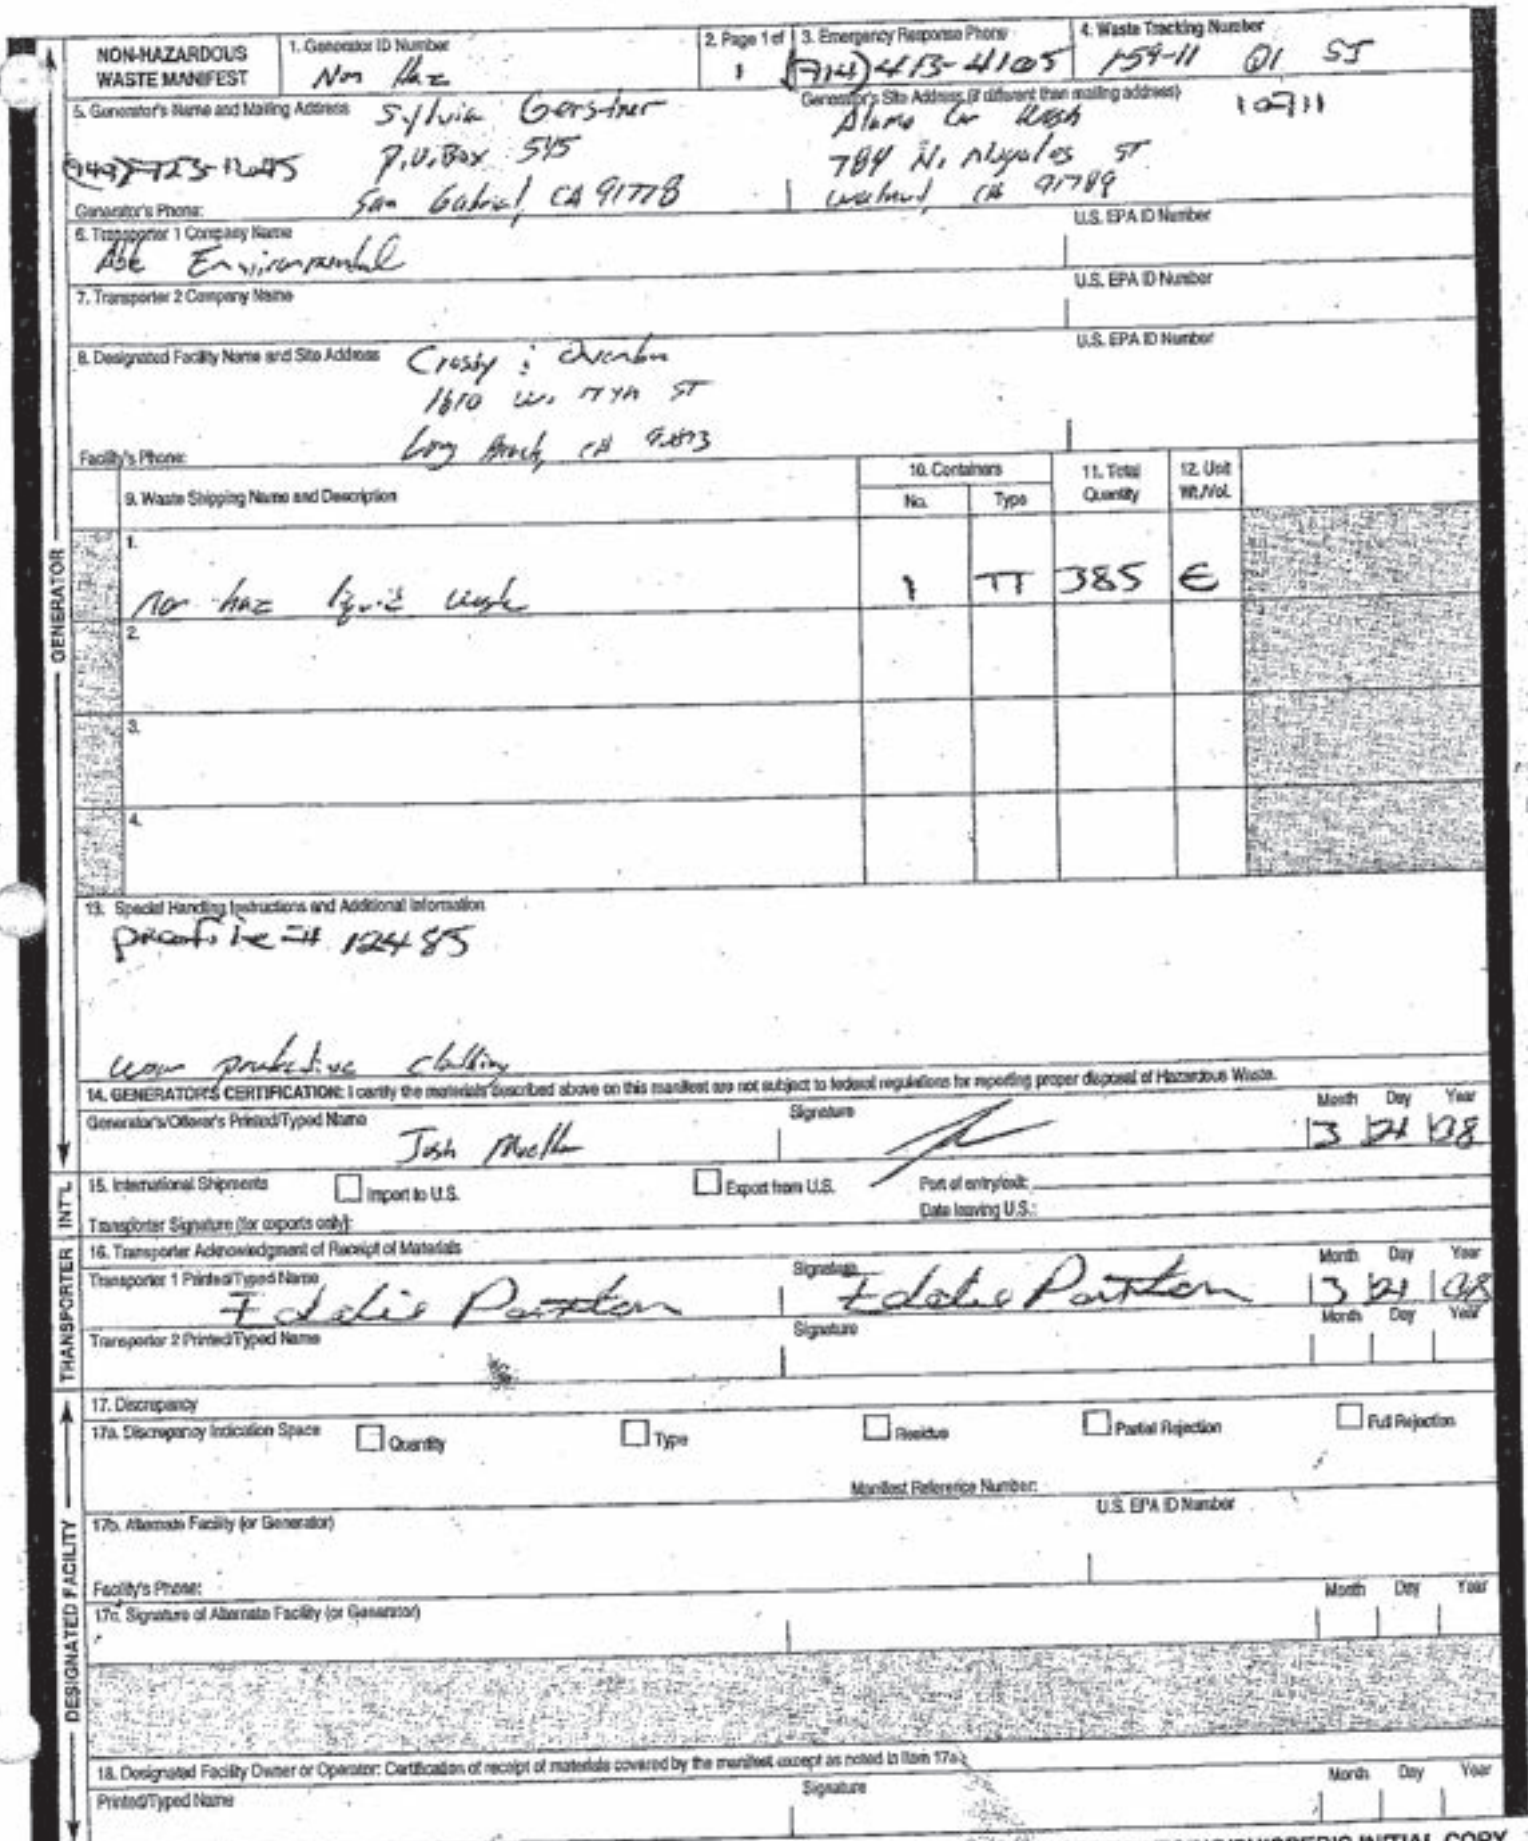 NON-HAZARDOUS WASTE MANIFEST
1. Generator ID Number
Non Haz
2. Page 1 of
1
3. Emergency Response Phone
(714) 413-4105
4. Waste Tracking Number
159-11 01 SJ
10711
5. Generator's Name and Mailing Address
Sylvia Gerstner
P.O. Box 545
San Gabriel, CA 91778
Generator's Site Address (if different than mailing address)
Alamo Car Wash
784 N. Nogales ST
Walnut, CA 91789
Generator's Phone:
6. Transporter 1 Company Name
U.S. EPA ID Number
Environmental
7. Transporter 2 Company Name
U.S. EPA ID Number
8. Designated Facility Name and Site Address
U.S. EPA ID Number
Crosby & Overton
1610 W. 17th ST
Long Beach, CA
Facility's Phone:
9. Waste Shipping Name and Description
10. Containers
No.
Type
11. Total Quantity
12. Unit Wt./Vol.
1.
non haz liquid waste
1 TT 385 G
2.
3.
4.
13. Special Handling Instructions and Additional Information
profile # 12485
wear protective clothing
14. GENERATOR'S CERTIFICATION: I certify the materials described above on this manifest are not subject to federal regulations for reporting proper disposal of Hazardous Waste.
Generator's/Offeror's Printed/Typed Name
Signature
Month Day Year
Josh
3 21 08
15. International Shipments
Import to U.S.
Export from U.S.
Port of entry/exit:
Date leaving U.S.:
Transporter Signature (for exports only):
16. Transporter Acknowledgment of Receipt of Materials
Transporter 1 Printed/Typed Name
Signature
Month Day Year
Eddie Patton
Eddie Patton
3 21 08
Transporter 2 Printed/Typed Name
Signature
Month Day Year
17. Discrepancy
17a. Discrepancy Indication Space
Quantity
Type
Residue
Partial Rejection
Full Rejection
Manifest Reference Number:
17b. Alternate Facility (or Generator)
U.S. EPA ID Number
Facility's Phone:
17c. Signature of Alternate Facility (or Generator)
Month Day Year
18. Designated Facility Owner or Operator: Certification of receipt of materials covered by the manifest except as noted in Item 17a
Printed/Typed Name
Signature
Month Day Year
INITIAL COPY
GENERATOR
INT'L
TRANSPORTER
DESIGNATED FACILITY